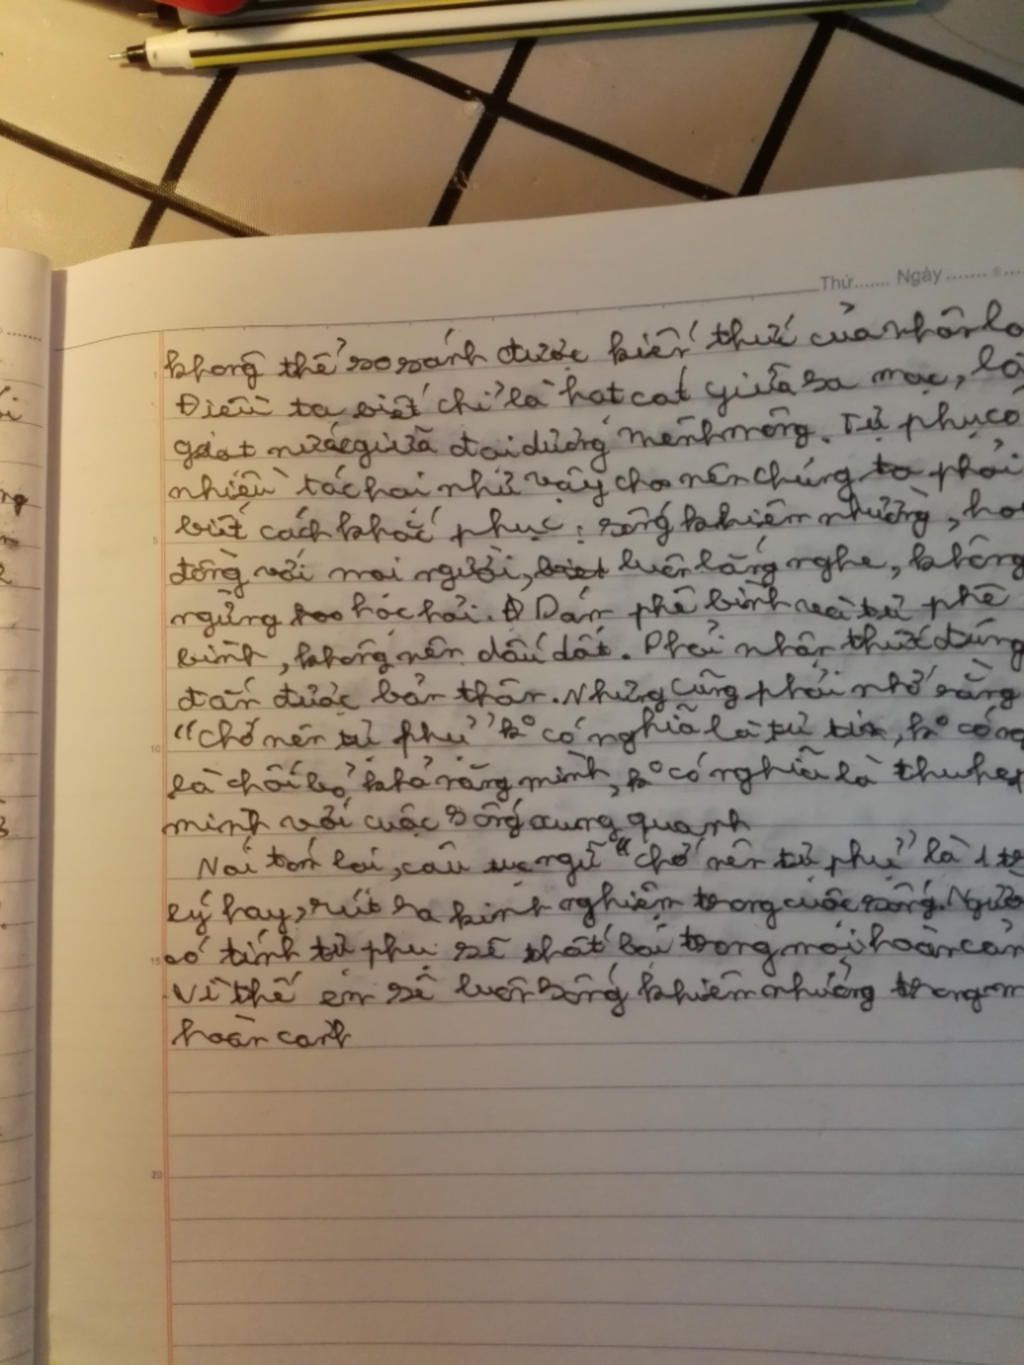 Thứ....... Ngày.......
không thể so sánh được kiến thức của nhân lo
Điều ta biết chỉ là hạt cát giữa sa mạc, là
giọt nước giữa đại dương mênh mông. Tự phụ có
nhiều tác hại như vậy cho nên chúng ta phải
biết cách khắc phục: sống khiêm nhường, hoà
đồng với mọi người, luôn lắng nghe, không
ngừng học hỏi. Dám phê bình và tự phê
bình, không nên dấu dốt. Phải nhận thức đúng
đắn được bản thân. Nhưng cũng phải nhớ rằng
"chớ nên tự phụ" ko có nghĩa là tự tin, ko có ng
là chối bỏ khả năng mình, ko có nghĩa là thu hẹp
mình với cuộc sống xung quanh
Nói tóm lại, câu ngữ "chớ nên tự phụ" là 1 tr
lý hay, rút ra kinh nghiệm trong cuộc sống. Người
có tính tự phụ sẽ thất bại trong mọi hoàn cản
Vì thế em sẽ luôn sống khiêm nhường trong m
hoàn cảnh
5
10
15
20